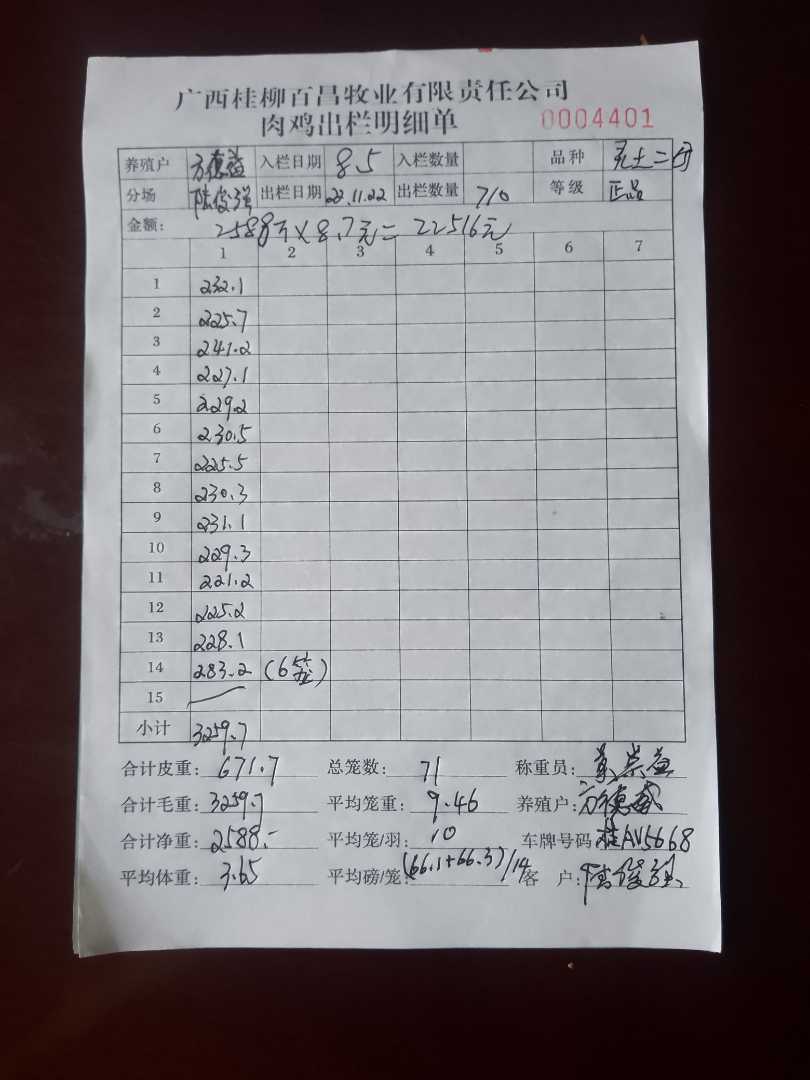 广西桂柳百昌牧业有限责任公司
肉鸡出栏明细单 0004401
养殖户 方德益 入栏日期 85 入栏数量 品种 土二
分场 陆俊强 出栏日期 22.11.22 出栏数量 710 等级 正品
金额: 2588斤×8.7元=22516元
1 2 3 4 5 6 7
1 232.1
2 225.7
3 241.2
4 227.1
5 229.2
6 230.5
7 225.5
8 230.3
9 231.1
10 229.3
11 221.2
12 225.2
13 228.1
14 283.2 (6笼)
15
小计 3259.7
合计皮重: 671.7 总笼数: 71 称重员:
合计毛重: 3259.7 平均笼重: 9.46 养殖户: 方德益
合计净重: 2588.- 平均笼/羽: 10 车牌号码 桂AV5668
平均体重: 3.65 平均磅/笼: (66.1+66.3)/14 客户: 陆俊强